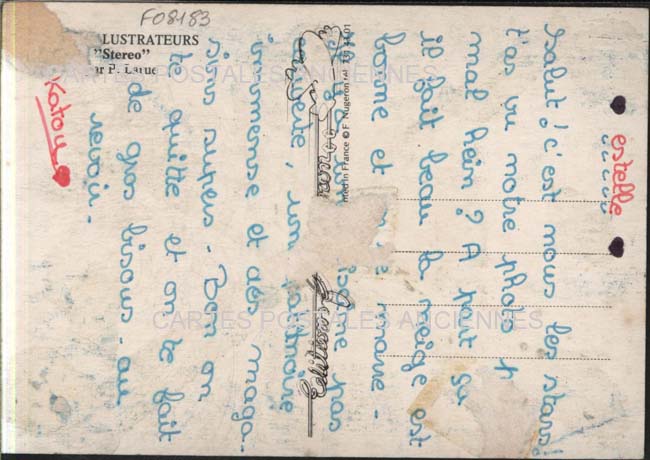 F08183
LUSTRATEURS
"Stereo"
ar P. Larue
Editions
printed in France © F. Nugeron
CARTES POSTALES ANCIENNES
CARTES POSTALES ANCIENNES
estelle
Salut! c'est nous les stars!
t'as vu notre photo
mal hein? A part ça
il fait beau la neige est
bonne et on se marre -
pas
ouverte, une patinoire
immense et des maga-
sins supers - Bon on
te quitte et on te fait
de gros bisous - au
revoir -
Katou